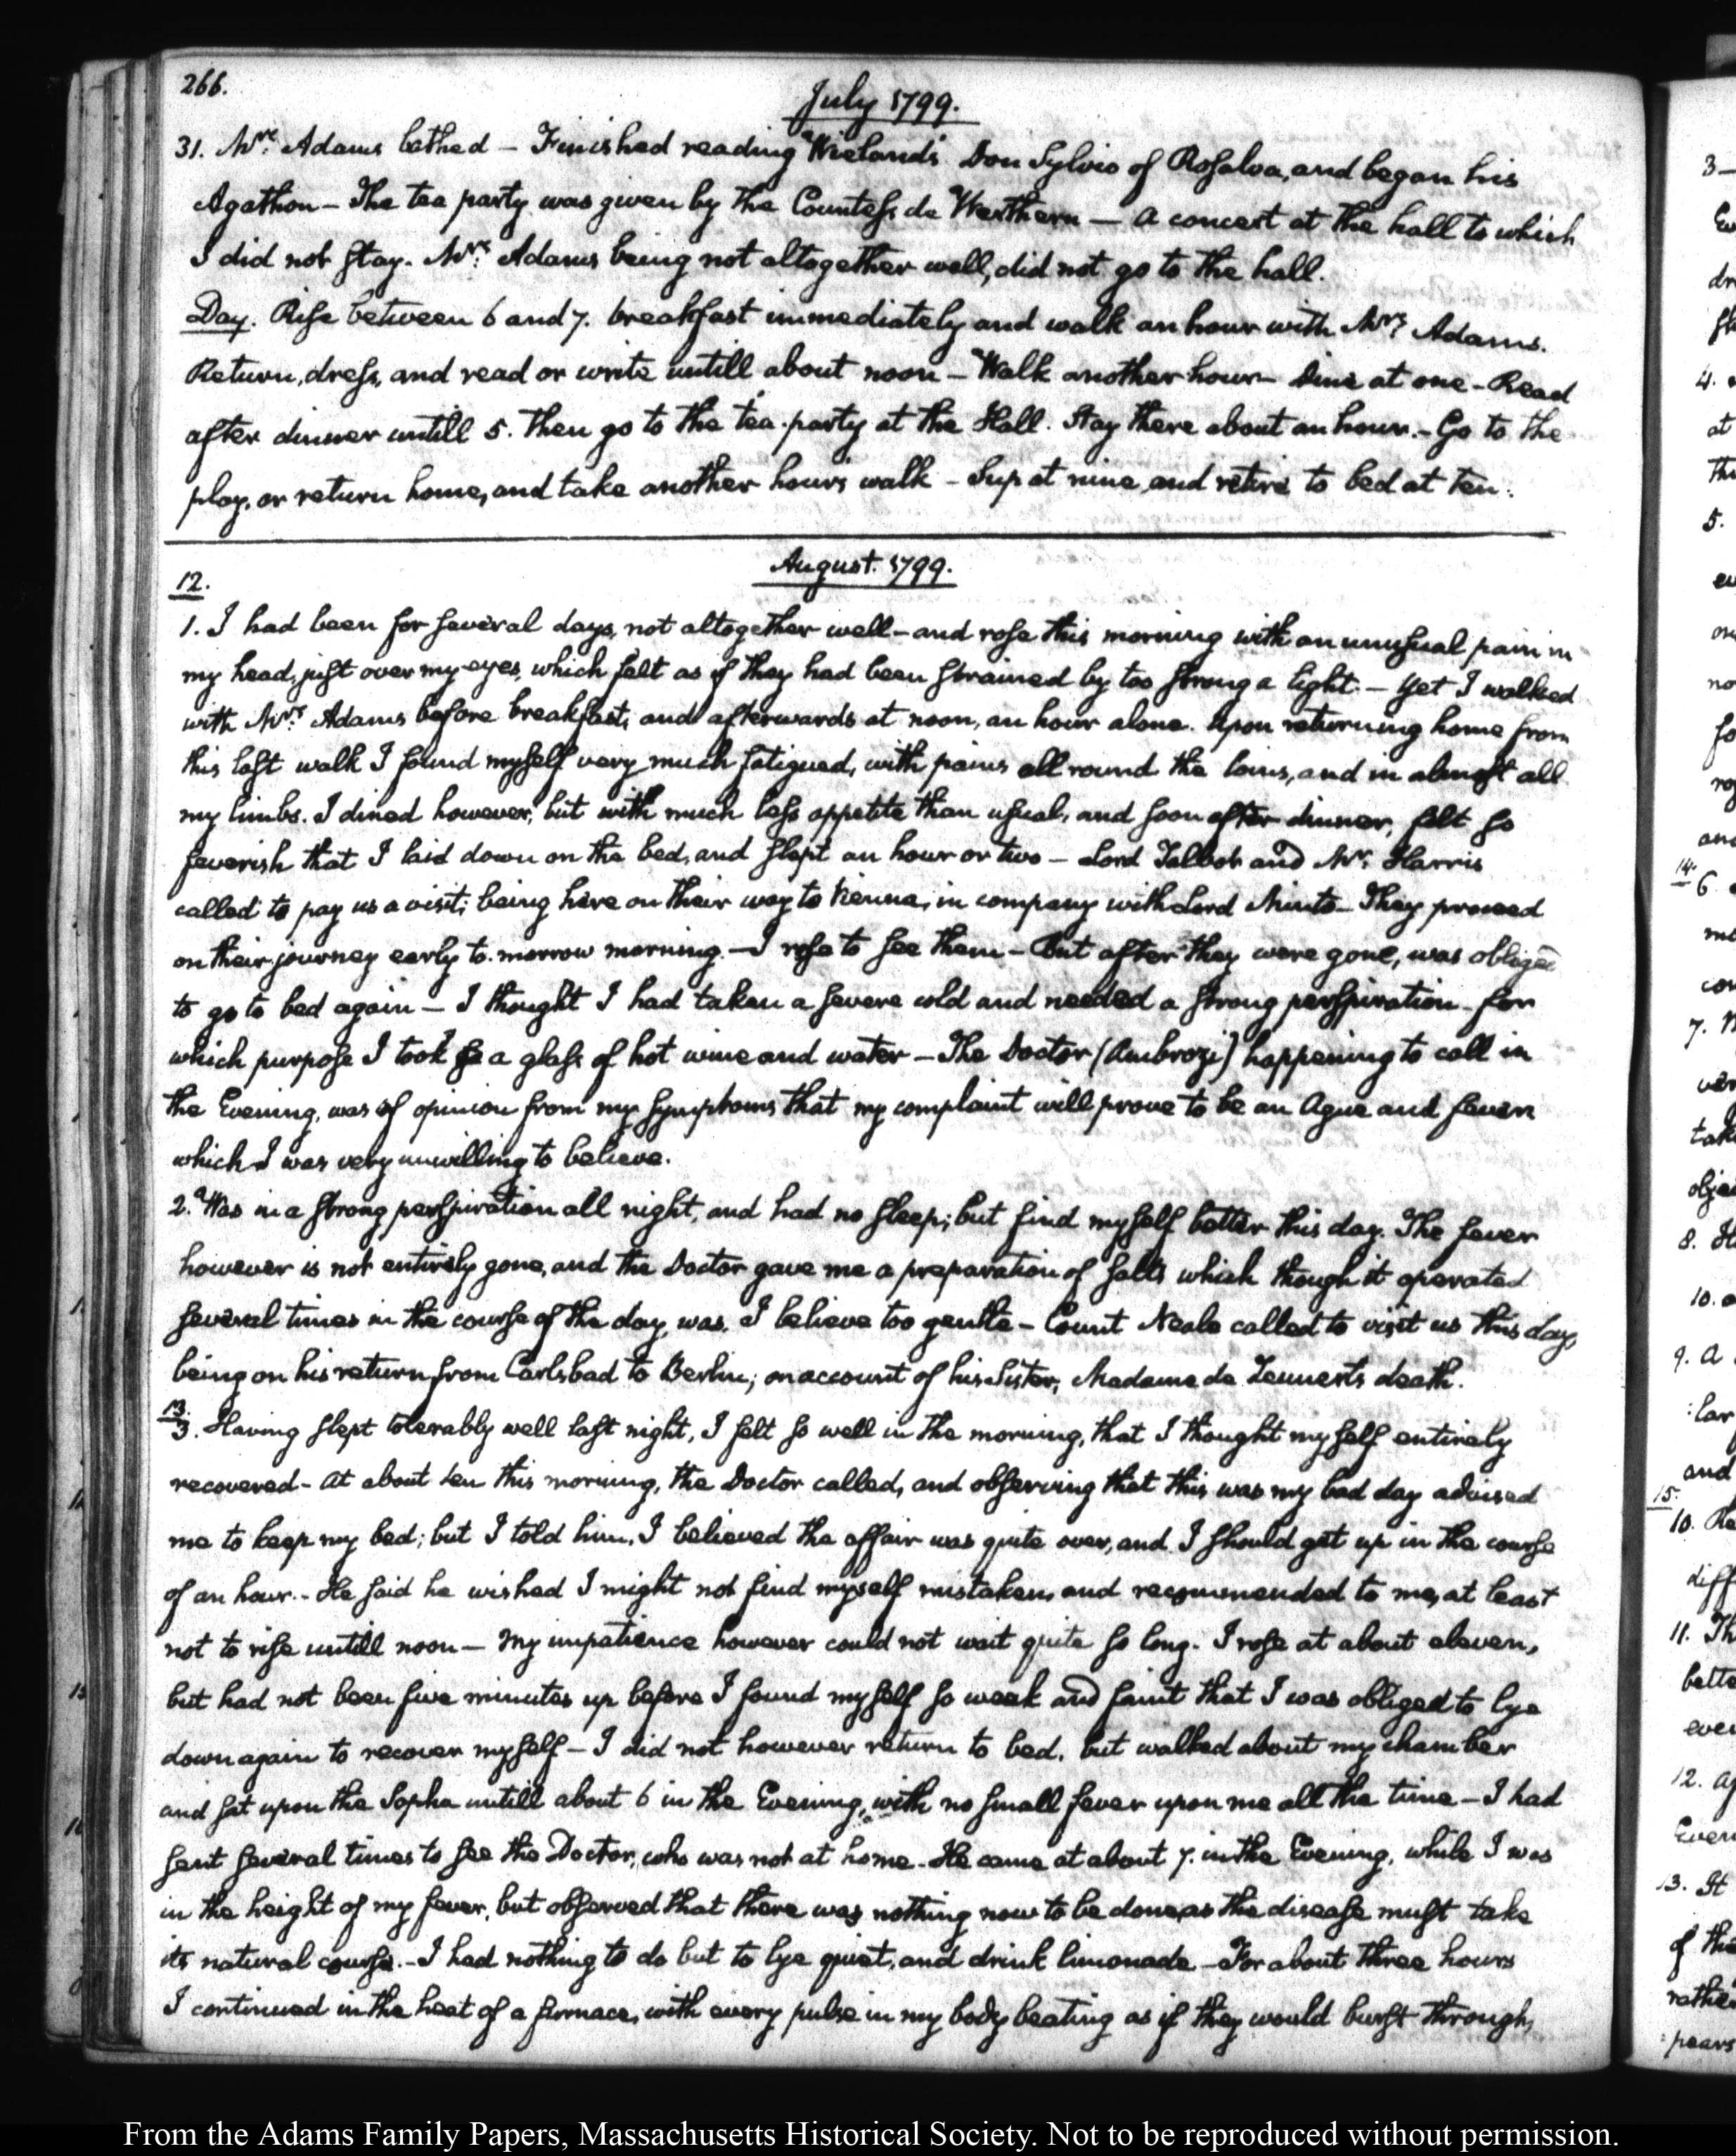 266.
July 1799.
31. Mrs. Adams bathed — Finished reading Wieland's Don Sylvio of Rosalva, and began his
Agathon — The tea party was given by the Countess de Werthern — a concert at the hall to which
I did not stay. Mrs. Adams being not altogether well, did not go to the hall.
Day. Rise between 6 and 7. breakfast immediately and walk an hour with Mrs. Adams.
Return, dress, and read or write untill about noon — Walk another hour — Dine at one — Read
after dinner untill 5. Then go to the tea-party at the Hall. Stay there about an hour. — Go to the
play, or return home, and take another hours walk — Sup at nine and retire to bed at ten.
August. 1799.
12.
1. I had been for several days, not altogether well — and rose this morning with an unusual pain in
my head, just over my eyes, which felt as if they had been strained by too strong a light. — Yet I walked
with Mrs. Adams before breakfast, and afterwards at noon, an hour alone. Upon returning home from
this last walk I found myself very much fatigued, with pains all round the loins, and in almost all
my limbs. I dined however, but with much less appetite than usual, and soon after dinner, felt so
feverish that I laid down on the bed, and slept an hour or two — Lord Talbot and Mr. Harris
called to pay us a visit; being here on their way to Vienna, in company with Lord Minto — They proceed
on their journey early to-morrow morning. — I rose to see them — But after they were gone, was obliged
to go to bed again — I thought I had taken a severe cold and needed a strong perspiration for
which purpose I took a glass of hot wine and water — The Doctor (Ambrozi) happening to call in
the Evening, was of opinion from my symptoms that my complaint will prove to be an Ague and fever
which I was very unwilling to believe.
2. Was in a strong perspiration all night, and had no sleep; but find myself better this day. The fever
however is not entirely gone, and the Doctor gave me a preparation of salts which though it operated
several times in the course of the day, was, I believe too gentle — Count Neale called to visit us this day,
being on his return from Carlsbad to Berlin, on account of his Sister, Madame de Zeunerts death.
13.
3. Having slept tolerably well last night, I felt so well in the morning, that I thought myself entirely
recovered — at about ten this morning, the Doctor called, and observing that this was my bad day advised
me to keep my bed; but I told him, I believed the affair was quite over, and I should get up in the course
of an hour. — He said he wished I might not find myself mistaken, and recommended to me, at least
not to rise untill noon — My impatience however could not wait quite so long. I rose at about eleven,
but had not been five minutes up before I found myself so weak and faint that I was obliged to lye
down again to recover myself — I did not however return to bed, but walked about my chamber
and sat upon the Sopha untill about 6 in the Evening, with no small fever upon me all the time — I had
sent several times to see the Doctor, who was not at home. He came at about 7. in the Evening, while I was
in the height of my fever, but observed that there was nothing now to be done, as the disease must take
its natural course. — I had nothing to do but to lye quiet, and drink limonade — For about three hours
I continued in the heat of a furnace, with every pulse in my body beating as if they would burst through,
From the Adams Family Papers, Massachusetts Historical Society. Not to be reproduced without permission.